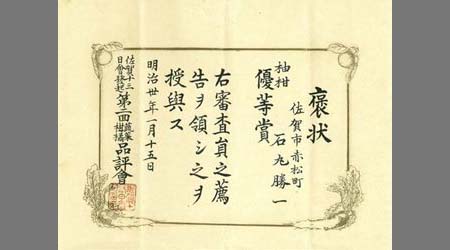 褒状
佐賀市赤松町
石丸勝一
柚柑
優等賞
右審査員之薦
告ヲ領シ之ヲ
授與ス
明治卅年一月十五日
佐賀十三
日會發起
第二回
蔬菜
柑橘
品評會